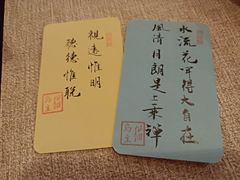 水流花開得大自在
風清月朗是上乘禪
視遠惟明
聽德惟聰